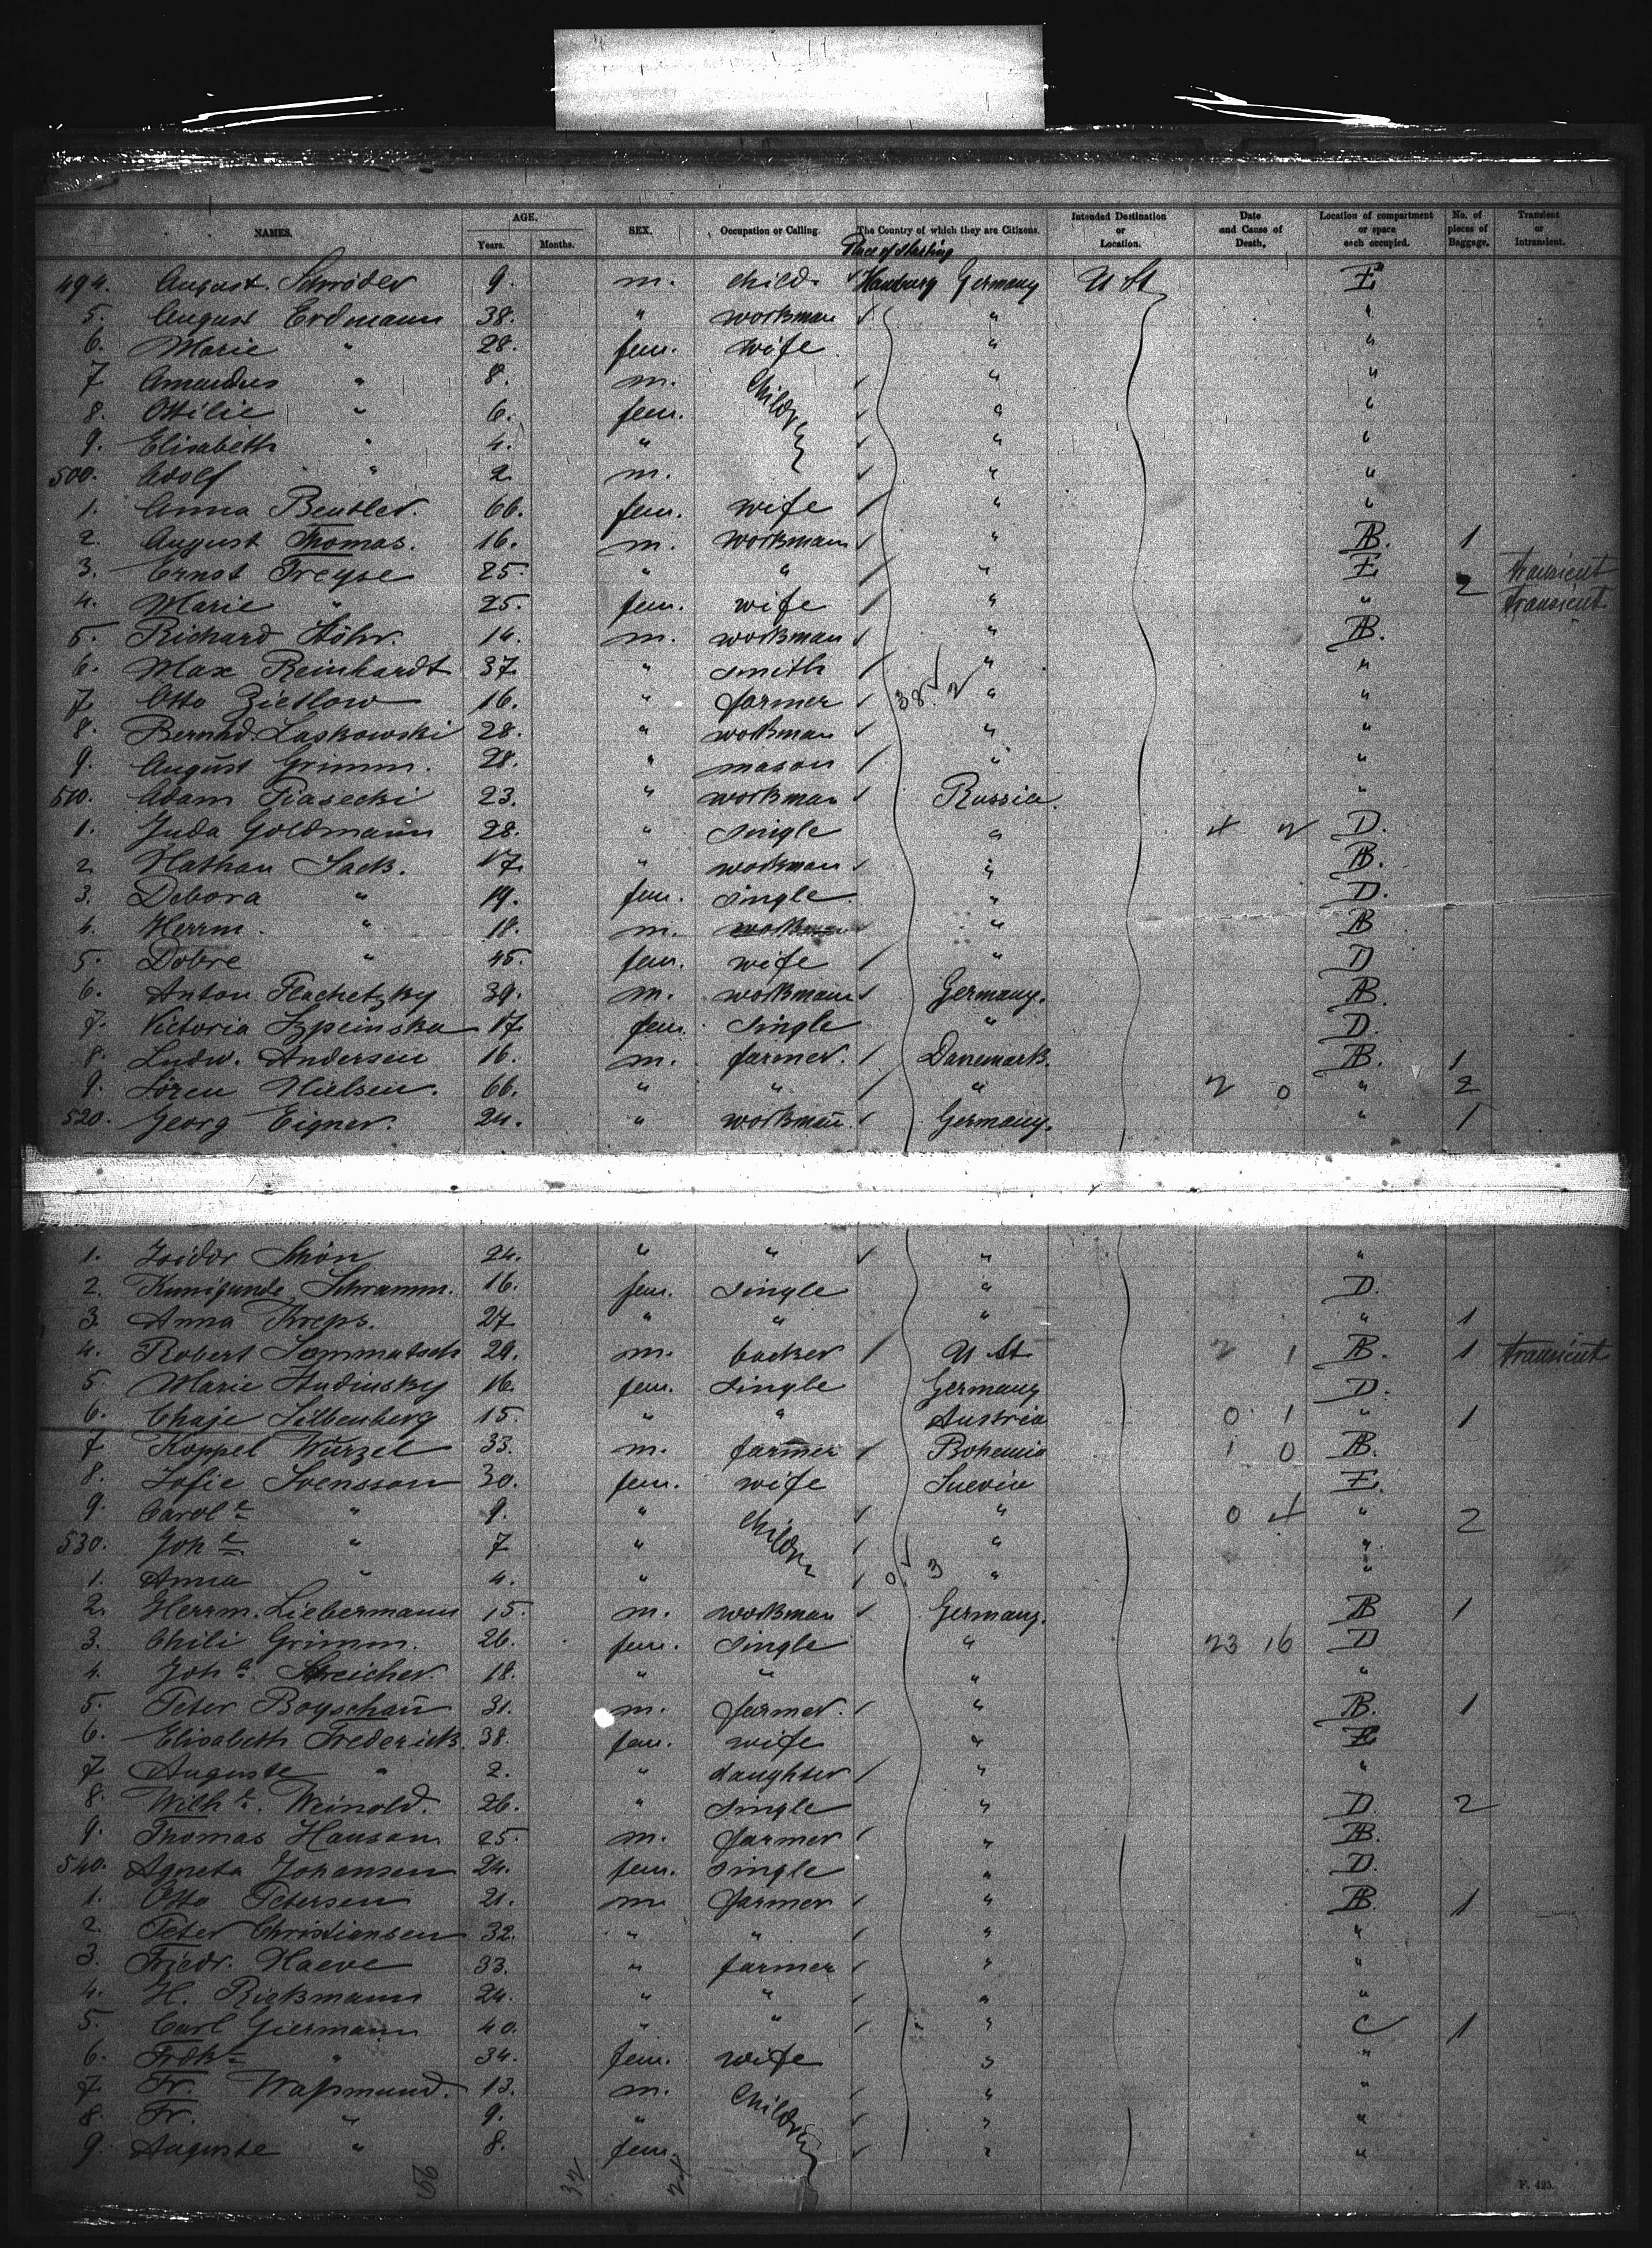 NAMES. AGE. Years. Months. SEX. Occupation or Calling. The Country of which they are Citizens. Intended Destination or Location. Date and Cause of Death. Location of compartment or space each occupied. No. of pieces of Baggage. Transient or Intransient.
Place of Starting
494. August. Schröder 9. m. child. Hamburg Germany U St E
5. August Erdmann 38. " workman " "
6. Marie " 28. fem. wife " "
7 Amandus " 8. m. Children " "
8. Ottilie " 6. fem. " "
9. Elisabeth " 4. " " "
500. Adolf " 2 m. " "
1. Anna Beutler. 66. fem. wife " "
2. August Thomas. 16. m. workman " AB. 1
3. Ernst Freyse 25. " " " E 2 transient
4. Marie " 25. fem. wife " " transient
5. Richard Stöhr. 14. m. workman " AB.
6. Max Reinhardt 37 " smith " "
7 Otto Zietlow 16. " farmer 38. 2 " "
8. Bernhd. Laskowski 28. " workman " "
9. August Grimm. 28. " mason " "
510. Adam Piasecki 23. " workman Russia. "
1. Juda Goldmann 28. " single " D.
2 Nathan Sack. 17. " workman " AB.
3. Debora " 19. fem. single " D.
4. Herrm. " 18. m. workman " AB
5. Dobre " 45. fem. wife " D
6. Anton Flachetzky 39. m. workman Germany. AB.
7. Victoria Szpeinska 17. fem. single " D.
8. Ludw. Andersen 16. m. farmer. Danemark. AB. 1
9. Sören Nielsen. 66. " " " 2 0 " 2
520. Georg Eigner. 24. " workman. Germany. " 1
1. Isidor Schön 24. " " " "
2. Kunigunde Schramm. 16. fem. single " D.
3. Anna Kreps. 27 " " " " 1
4. Robert Sommatsch 29. m. backer U St 2 1 AB. 1 transient
5. Marie Studinsky 16. fem. single Germany D.
6. Chaje Silbenberg 15. " " Austria 0 1 " 1
7 Koppel Wurzel 33. m. farmer Bohemia 1 0 AB.
8. Sofie Svensson 30. fem. wife Suevia E.
9. Carole " 9. " Children " 0 4 " 2
530. Johe " 7 " " "
1. Anna " 4. " 0. 3 " "
2. Herrm. Liebermann 15. m. workman Germany. AB 1
3. Chili Grimm. 26. fem. single " 23 16 D
4. Joha. Streicher. 18. " " " "
5. Peter Boyschau 31. m. farmer. " AB. 1
6. Elisabeth Frederick. 38. fem. wife " E
7 Auguste " 2. " daughter " "
8. Wilhe. Weinold. 26. " single " D. 2
9. Thomas Hansan 25. m. farmer " AB.
540. Agneta Johansen 24. fem. single " D.
1. Otto Petersen 21. m farmer " AB. 1
2. Peter Christiansen 32. " " " "
3. Friedr. Naeve 33. " farmer " "
4. H. Rickmann 24. " " " "
5. Carl Giermann 40. " " " C 1
6. Frdke " 34. fem. wife " "
7 Fr. Waßmund. 13. m. Children " "
8. Fr. " 9. " " "
9. Auguste " 8. fem. " "
56 32 24
F. 425.